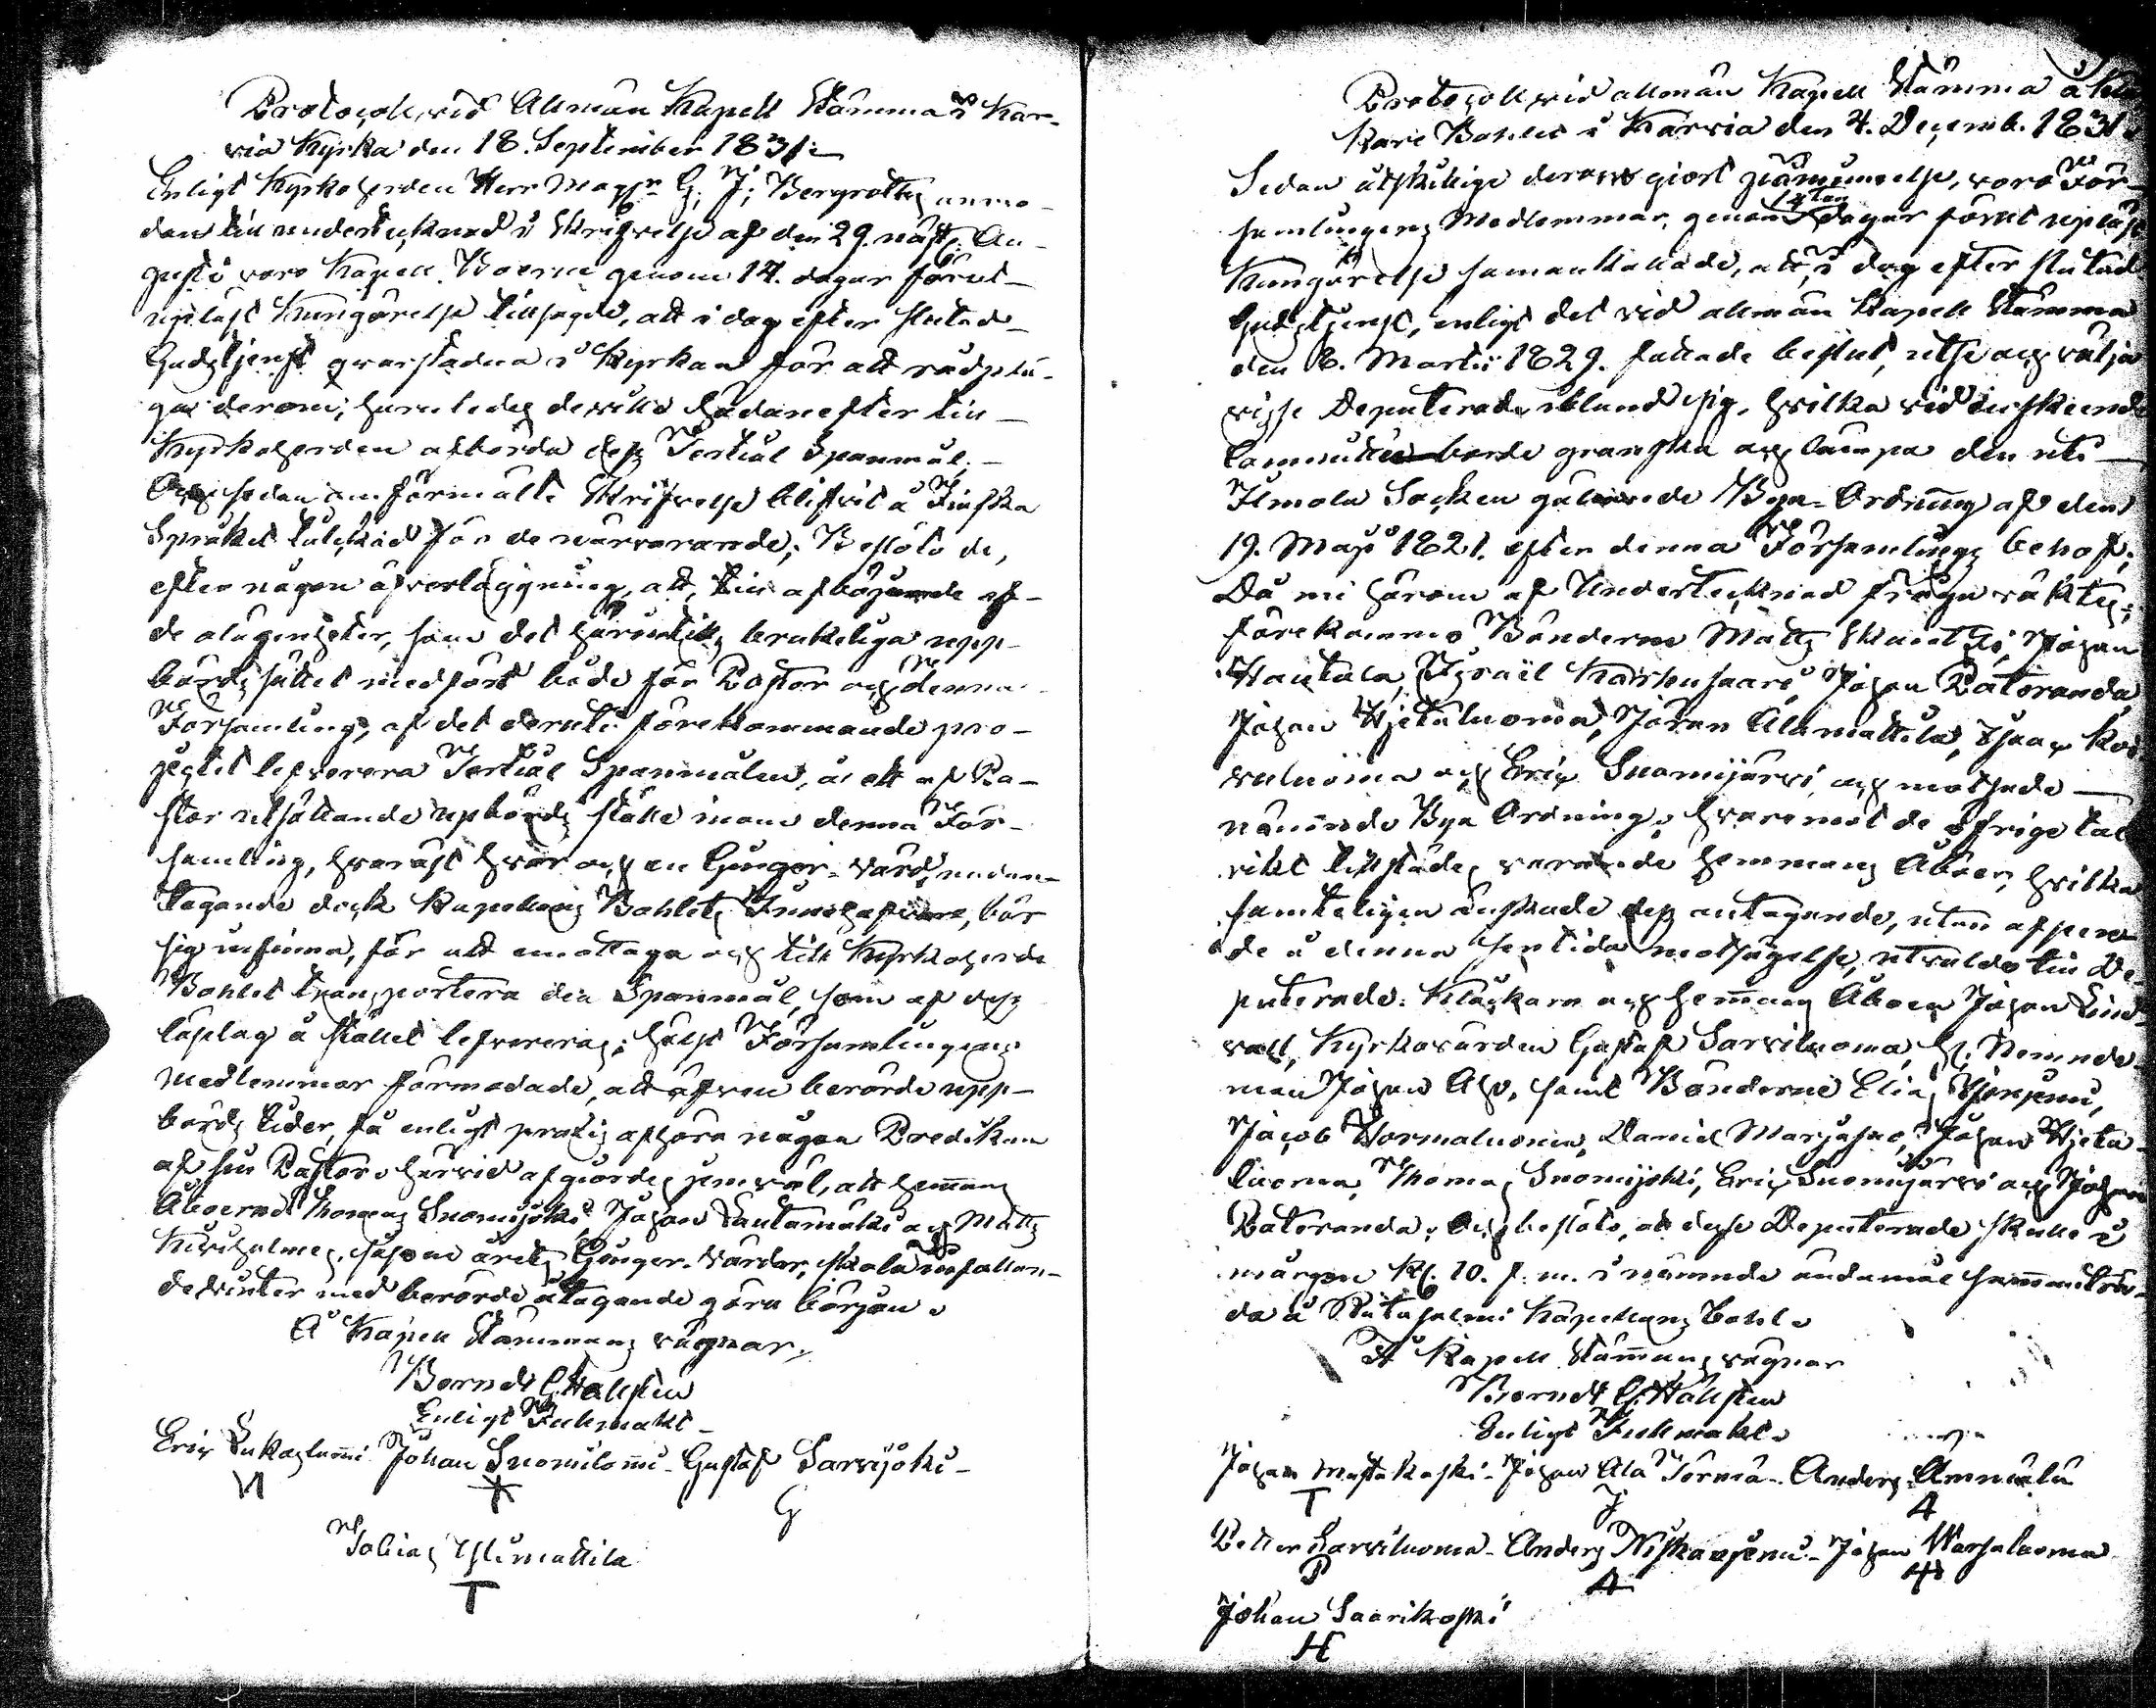 Protocoll, vid Allmän Kapell Stämma i Kar-
via Kyrka den 18. September 1831.
Enligt Kyrkoherden Herr Magistr. G. J. Bergroths anmo-
dan till undertecknad i Skrifvelse af den 29. näst. Au-
gusti voro Kapell Boerne genom 14. dagar förut
uplyst Kungörelse tillsagde, att i dag efter slutad
Gudstjenst qvarstadna i Kyrkan för att rådplä-
ga derom, huruledes de wille hädanefter till
Kyrkoherden afbörda dess Tertial Spanmål.
Och sedan omförmälte Skrifvelse blifvit å Finska
Språket tolckad för de närvarande; Beslöto de,
efter någon öfverläggning, att, till afböjande af
de olägenheter, som det härintills brukeliga upp-
börds sättet medfört både för Pastor och denna
Församling, af det derute förekommande pro-
jectet lefverera Tertial Spanmålen, å ett af Pa-
stor utsättande upbörds ställe inom denna För-
samling, hvaräst hvar och en Gånger-Vård, undan-
tagande dock Kapellans Bohlets Innehafvare, bör
sig infinna, för att emottaga och till Kyrkoherde
Bohlet transportera den Spanmål, som af dess
läslag å stället lefvereras; hälst Församlingens
Medlemmar förmodade, att äfven berörde upp-
börds tider, få enligt praxis afhöra någon Predikan
af sin Pastor. Härvid afgjordes jemväl, att hemans
Åboerne Thomas Suomijoki, Johan Rautamäki och Matts
Kiviholme, såsom årets Gånger-Vårdar, skola infallan-
de vinter med berörde åtagande göra början.
Å Kapell Stämmans vägnar,
Berndt G. Hallstén
Enligt Fullmakt
Eric Lukaslammi Johan Suomilammi Gustaf Sarvijoki
N * G
Tobias Ylimattila
T
Protocoll, vid allmän Kapell Stämma å Kloc-
kare Bohlet i Karvia den 4. Decemb. 1831.
Sedan åtskillige derom gjort påminnelse, voro För-
samlingens Medlemmar, genom 14 dagar förut upläst
Kungörelse samankallade, att, i dag efter slutad
Gudstjenst, enligt det vid allmän Kapell Stämma
den 8. Martii 1829. fattade beslut, utse och välja
visse Deputerade ibland sig, hvilka vid inskeende
Committé borde granska och lämpa den uti
Ilmola Socken gällande Bya-Ordning af den
19. Maji 1821. efter denna Församlings behof.
Då nu härom af Undertecknad fråga väcktes,
förekommo Bönderne Matts Skantsi, Johan
Hautala, Israel Karhusaari, Johan Patoranda,
Johan Hietaluoma, Jöran Alamattila, Isaac Koi-
vuluoma och Eric Suomijärvi och motsade
nämnde Bya Ordning, hvaremot de öfrige tal-
rikt tillstädes varande hemmans Åboer, hvilka
samteligen önskade dess antagande, utan afseen-
de å denna sentida motsägelse, utvaldo till De-
puterade: Klockaren och hemans Åboen Johan Lind-
vall, Kyrkovärden Gustaf Sarviluoma, H. Nemnde-
man Johan Aho, samt Bönderne Elias
Jacob Wormaluoma, Daniel Marjasuo, Johan Hjeta-
luoma, Thomas Suomijoki, Eric Suomijärvi och Johan
Patoranda. Och beslöts, at desse Deputerade skulle i
morgon Kl. 10. f. m. i nämnde ändamål sammanträ-
da å Rantasalmi Kapellans Bohl.
Å Kapell Stämans vägnar
Berndt G. Hallstén
Enligt Fullmakt.
Johan Mustakoski Johan Ala Törmä Anders Ammäla
T J A
Petter Sarviluoma Anders Niskansenu Johan Warpaluoma
P A H
Johan Saarikoski
H